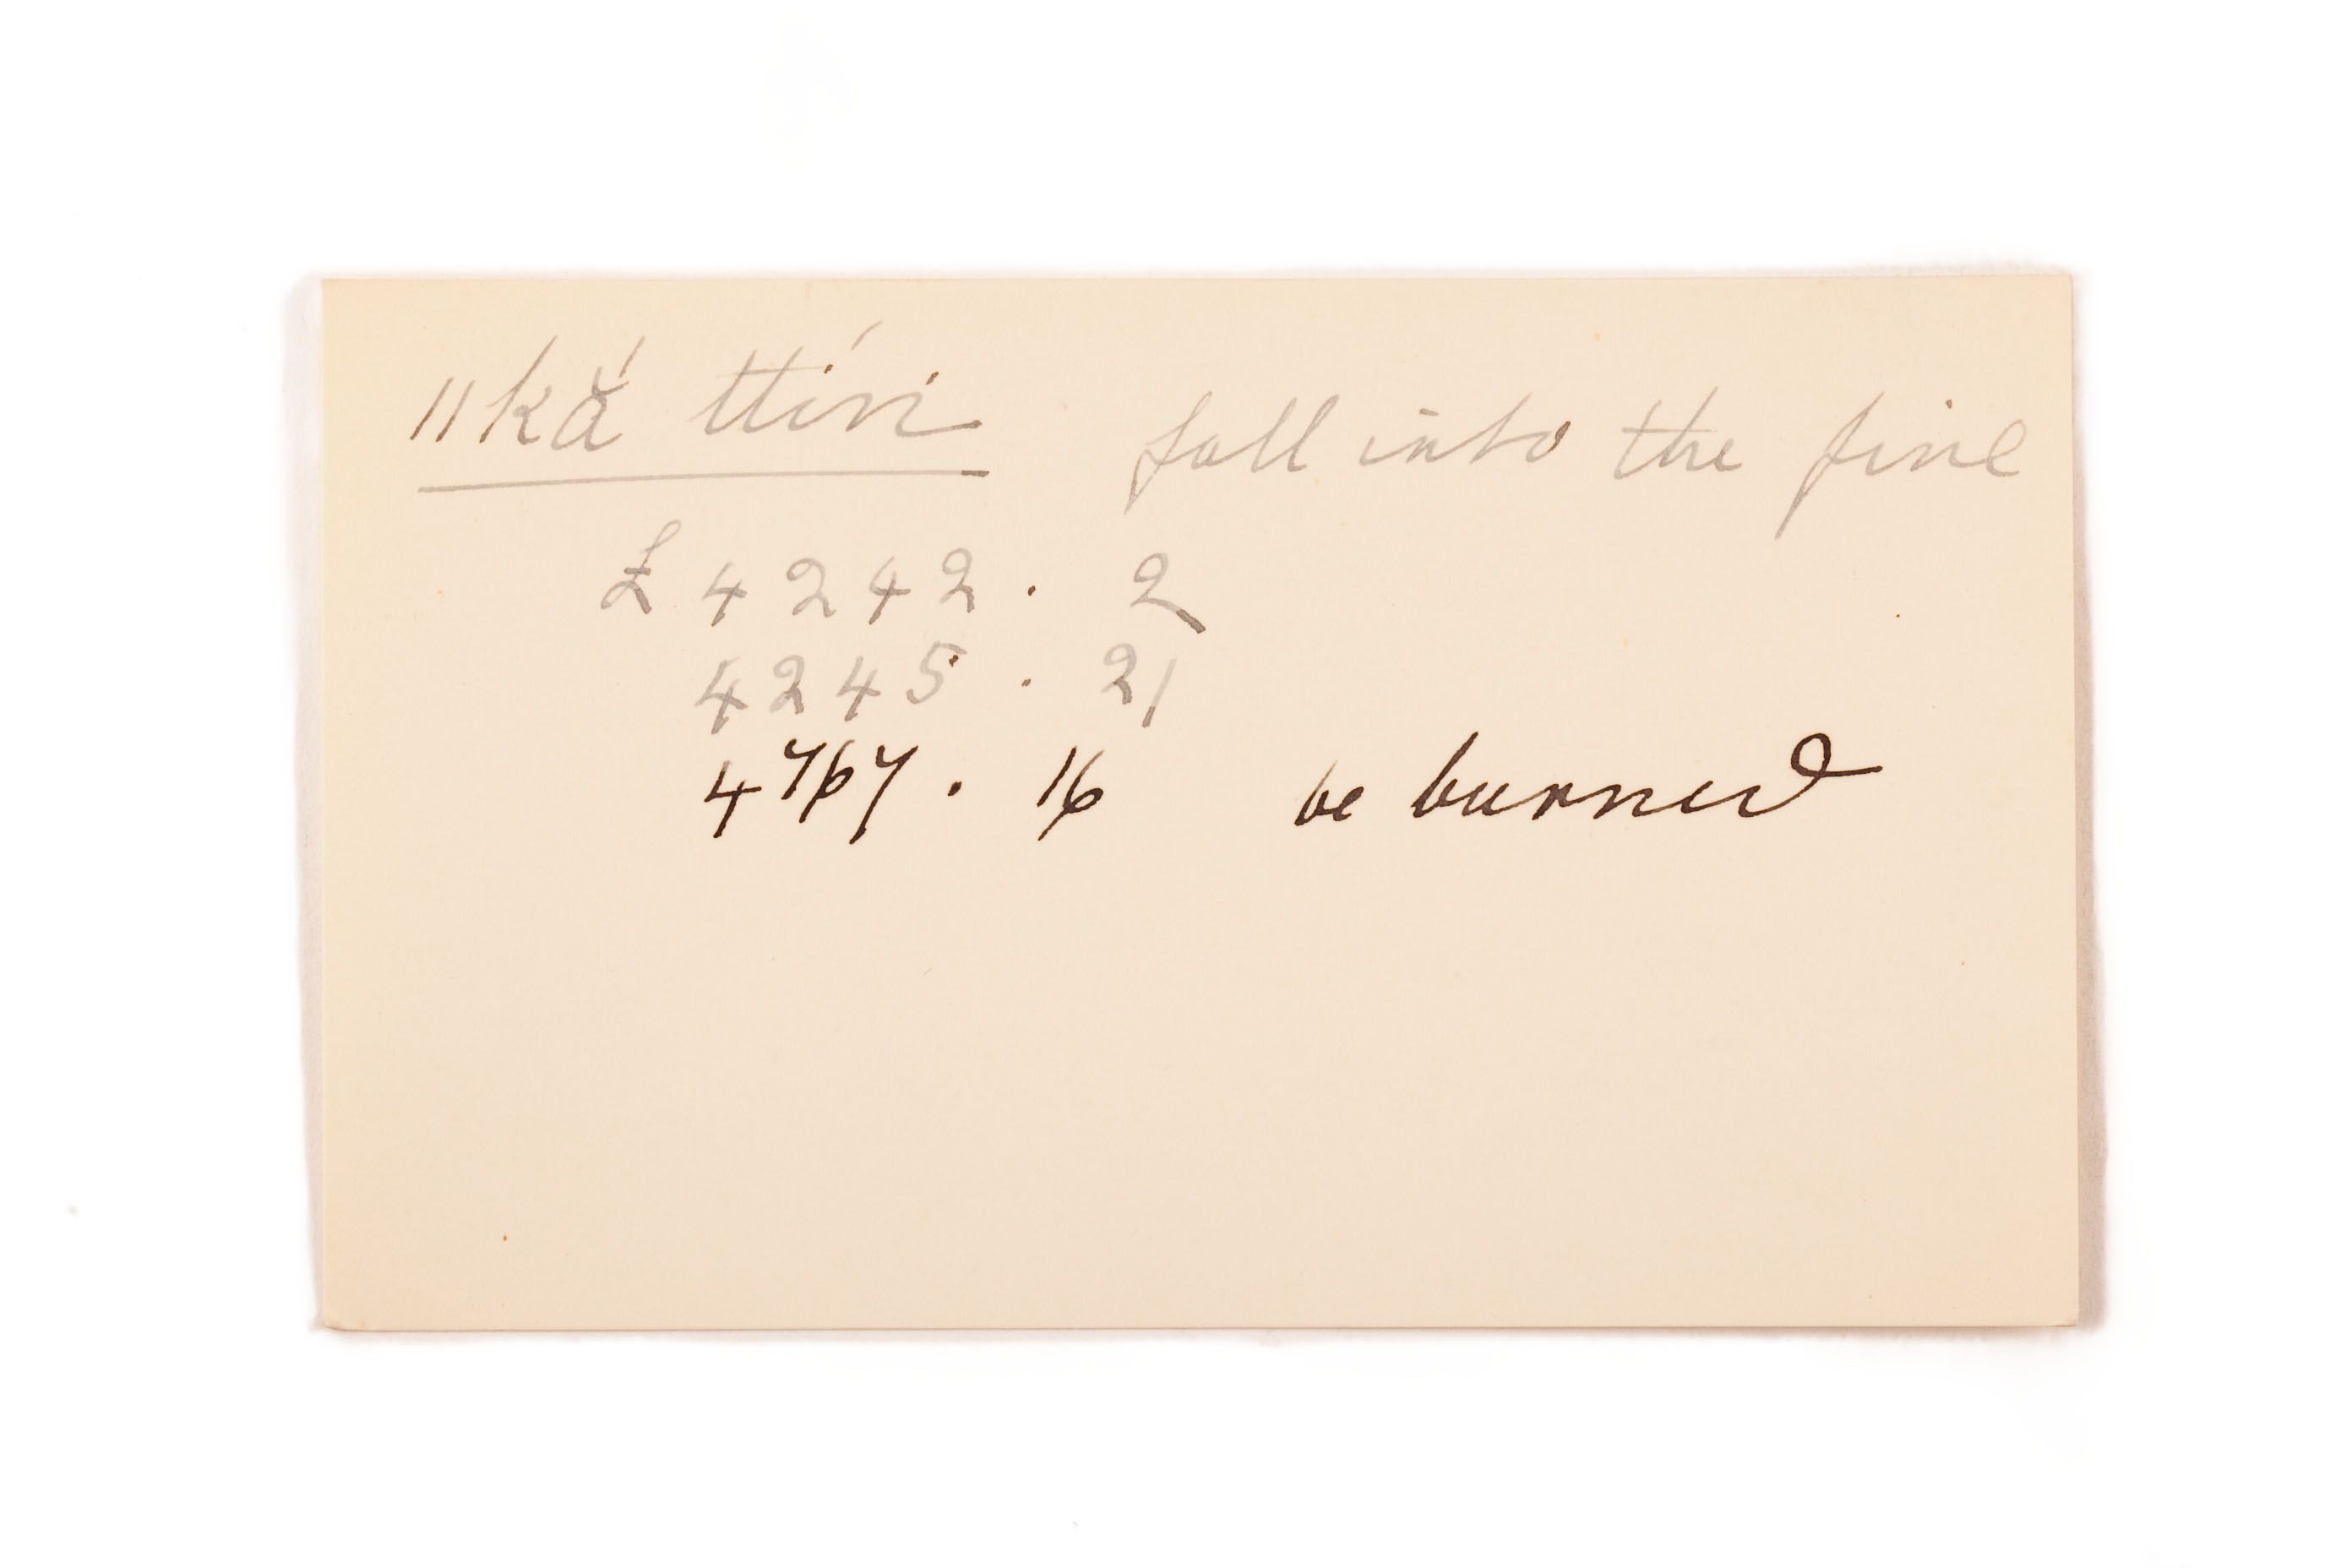 ǁkắ ttíri fall into the fire
Ł 4242 . 2
4245 . 21
4767 . 16 be burned